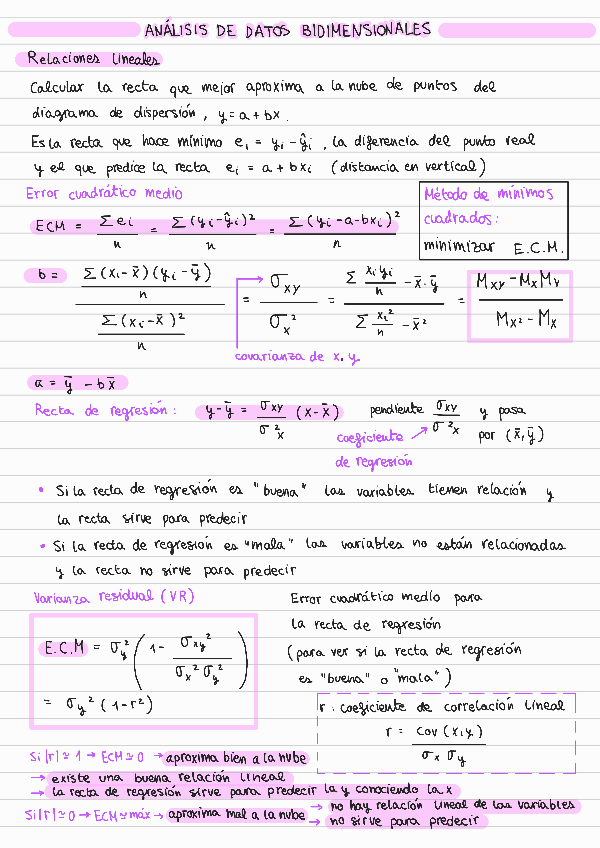 ANÁLISIS DE DATOS BIDIMENSIONALES
Relaciones lineales
Calcular la recta que mejor aproxima a la nube de puntos del
diagrama de dispersión, y = a + bx.
Es la recta que hace mínimo eᵢ = yᵢ - ŷᵢ, la diferencia del punto real
y el que predice la recta eᵢ = a + bxᵢ (distancia en vertical)
Error cuadrático medio
ECM = Σeᵢ / n = Σ(yᵢ - ŷᵢ)² / n = Σ(yᵢ - a - bxᵢ)² / n
Método de mínimos
cuadrados:
minimizar E.C.M.
b = (Σ(xᵢ - x̄)(yᵢ - ȳ) / n) / (Σ(xᵢ - x̄)² / n) = σxy / σx² = (Σ xᵢyᵢ / n - x̄·ȳ) / (Σ xᵢ² / n - x̄²) = (Mxy - MxMy) / (Mx² - Mx)
covarianza de x,y
a = ȳ - bx̄
Recta de regresión: y - ȳ = σxy / σ²x (x - x̄) pendiente σxy / σ²x y pasa
por (x̄, ȳ)
coeficiente
de regresión
• Si la recta de regresión es "buena" las variables tienen relación y
la recta sirve para predecir
• Si la recta de regresión es "mala" las variables no están relacionadas
y la recta no sirve para predecir
Varianza residual (VR)
E.C.M = σy² (1 - σxy² / σx² σy²)
= σy² (1 - r²)
Error cuadrático medio para
la recta de regresión
(para ver si la recta de regresión
es "buena" o "mala")
r: coeficiente de correlación lineal
r = cov (x,y) / σx σy
Si |r| ≃ 1 → ECM ≃ 0 → aproxima bien a la nube
→ existe una buena relación lineal
→ la recta de regresión sirve para predecir la y conociendo la x
Si |r| ≃ 0 → ECM ≃ máx → aproxima mal a la nube
→ no hay relación lineal de las variables
→ no sirve para predecir